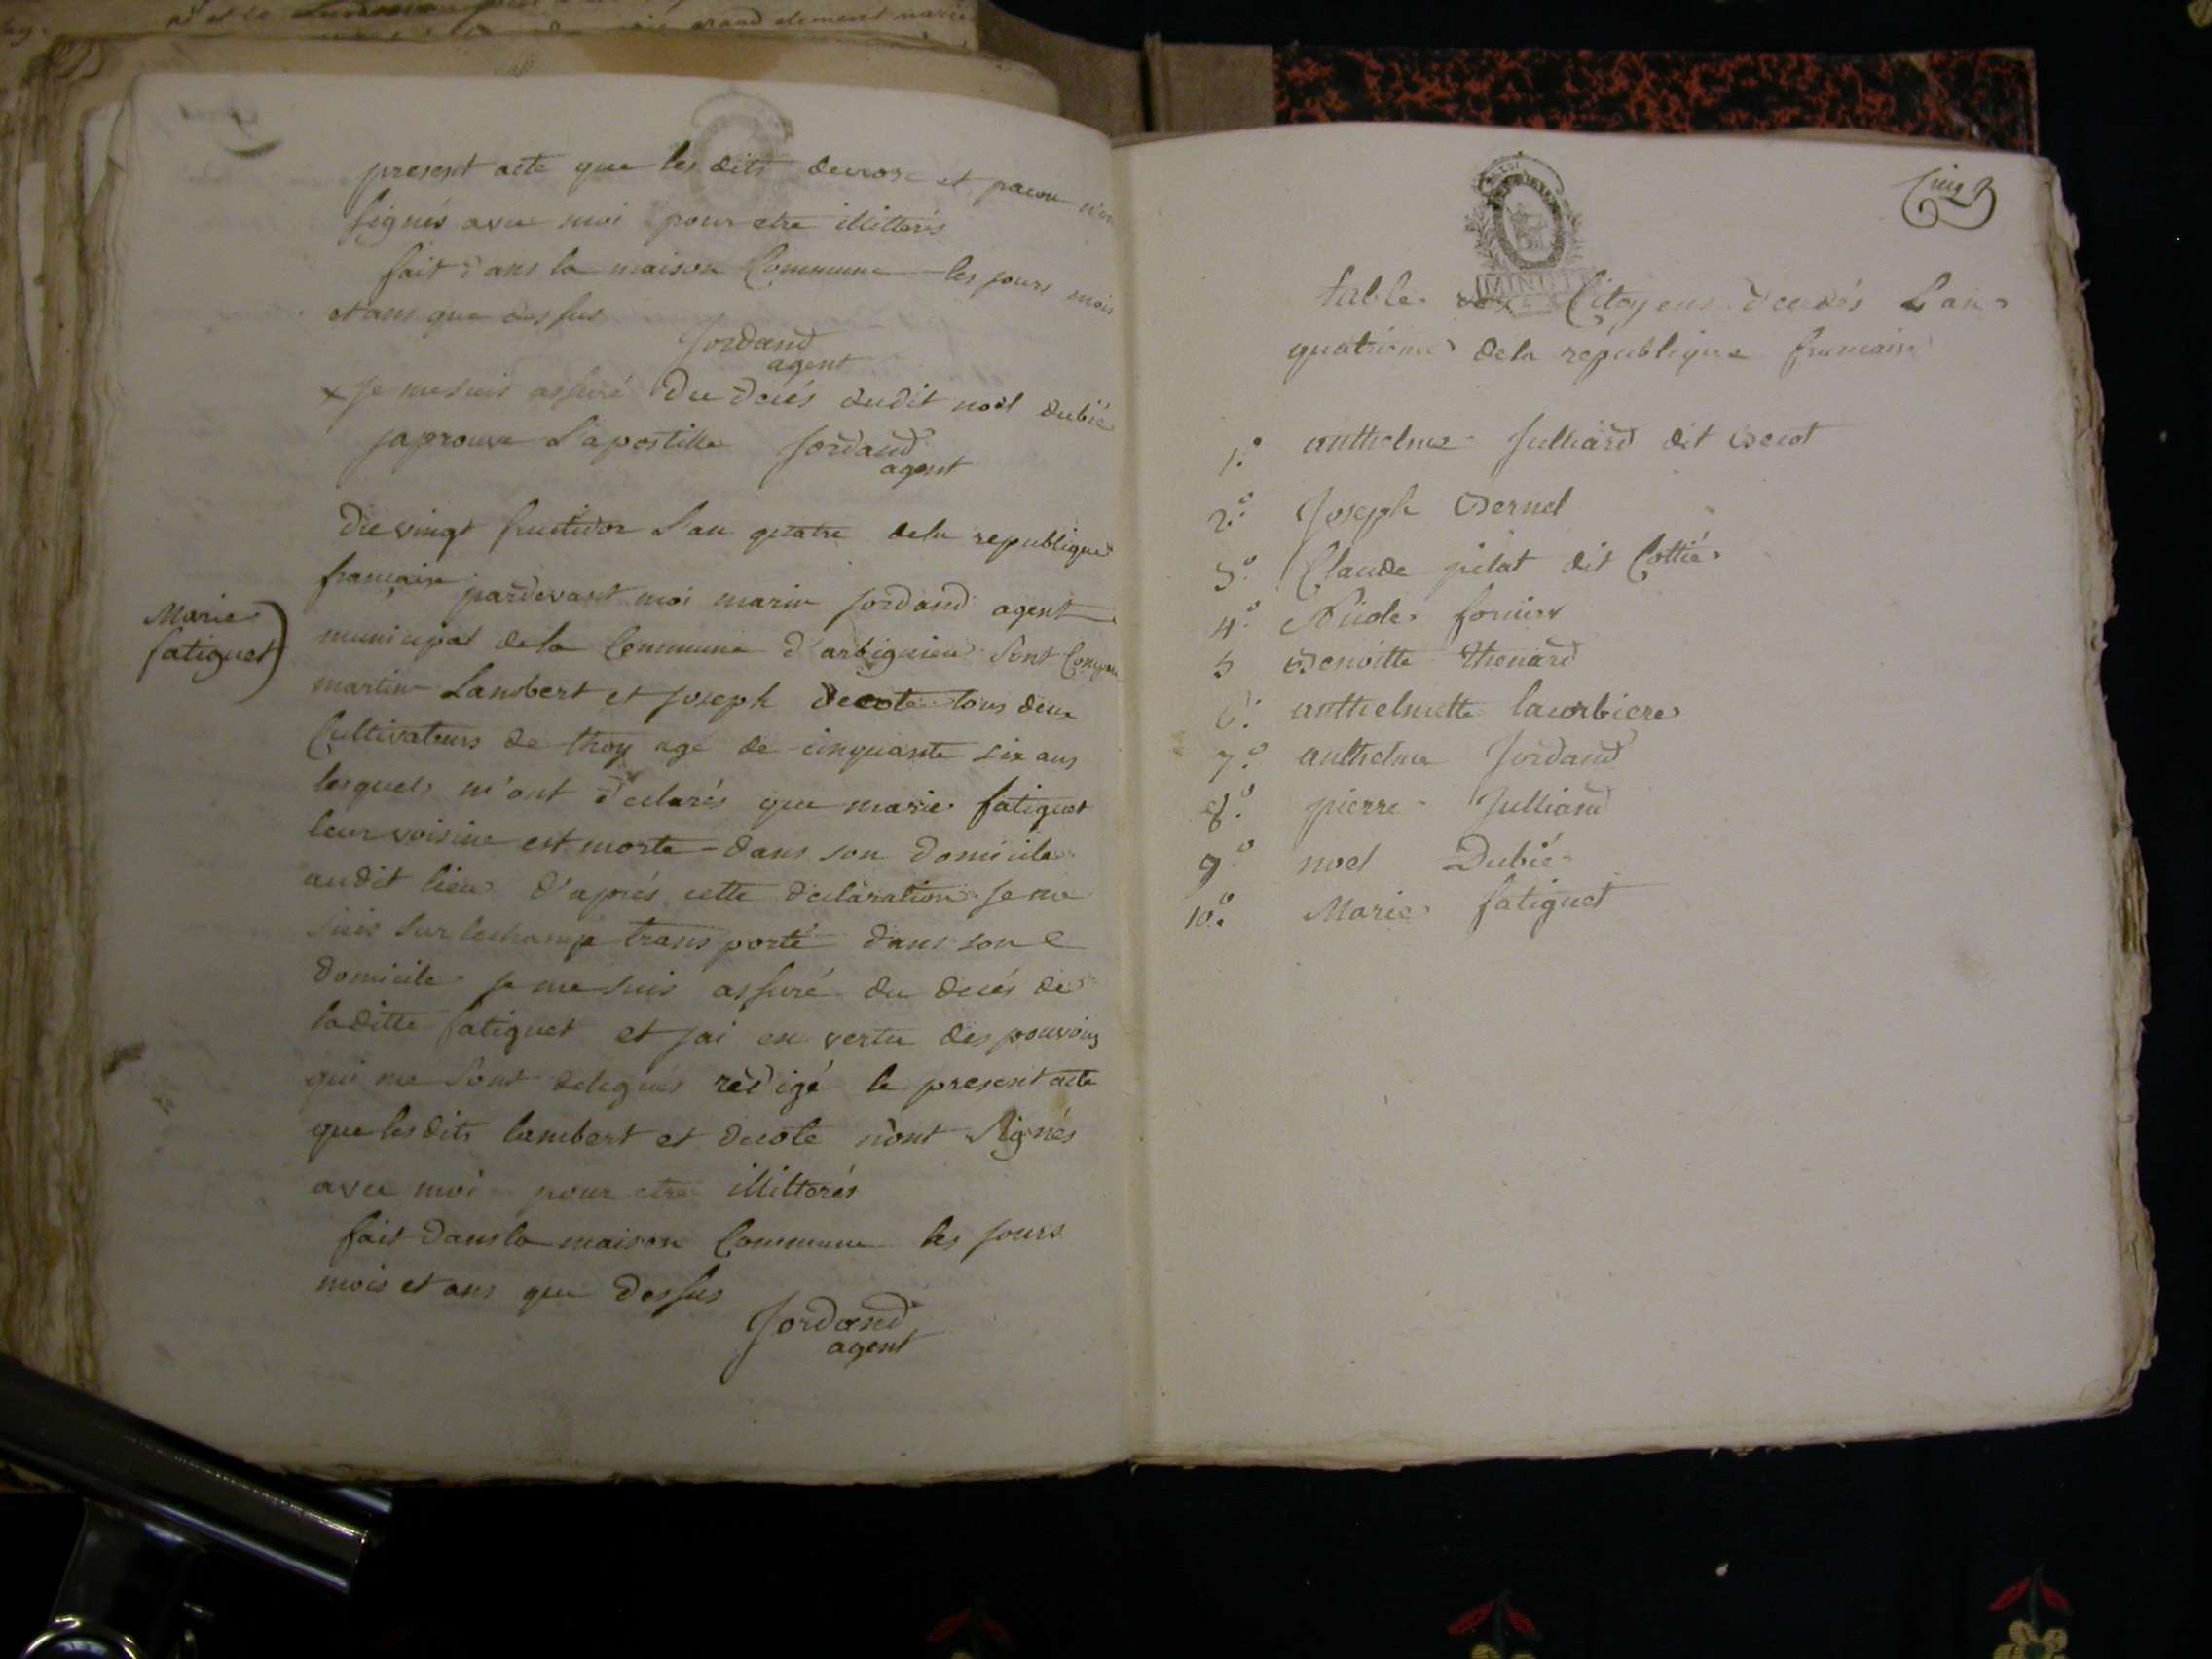 present acte que les dits decrose et pacon n'on
signés avec moi pour etre illitterés
fait dans la maison Commune les jours mois
et ans que dessus
Jordand
agent
x je me suis assuré du decés dudit noel dubié
japrouve l'apostille Jordand
agent
Marie
fatiguet
Du vingt fructidor l'an quatre dela republique
française pardevant moi marin Jordand agent
municipal dela Commune d'arbignieu sont Comparu
martin Lambert et joseph decote tous deux
Cultivateurs de thoy agé de cinquante six ans
lesquels m'ont declarés que marie fatiguet
leur voisine est morte dans son domicile
audit lieu d'aprés cette declaration je me
suis sur lechamp trans porté dans son
domicile je me suis assuré du decés de
laditte fatiguet et jai en vertu des pouvoirs
qui me sont delegués rédigé le present acte
que les dits lambert et decote n'ont signés
avec moi pour etre illitterés
fait dans la maison Commune les jours
mois et ans que dessus
Jordand
agent
Cinq
MINUTE
table des Citoyens decedés L'an
quatrieme dela republique francaise
1.° anthelme Julliard dit
2.° Joseph Bernel
3.° Claude pilat dit Cottié
4.° fornier
5 Benoitte Thenard
6.° anthelmette lacorbiere
7.° anthelme Jordand
8.° pierre Julliand
9.° noel Dubié
10.° Marie fatiguet